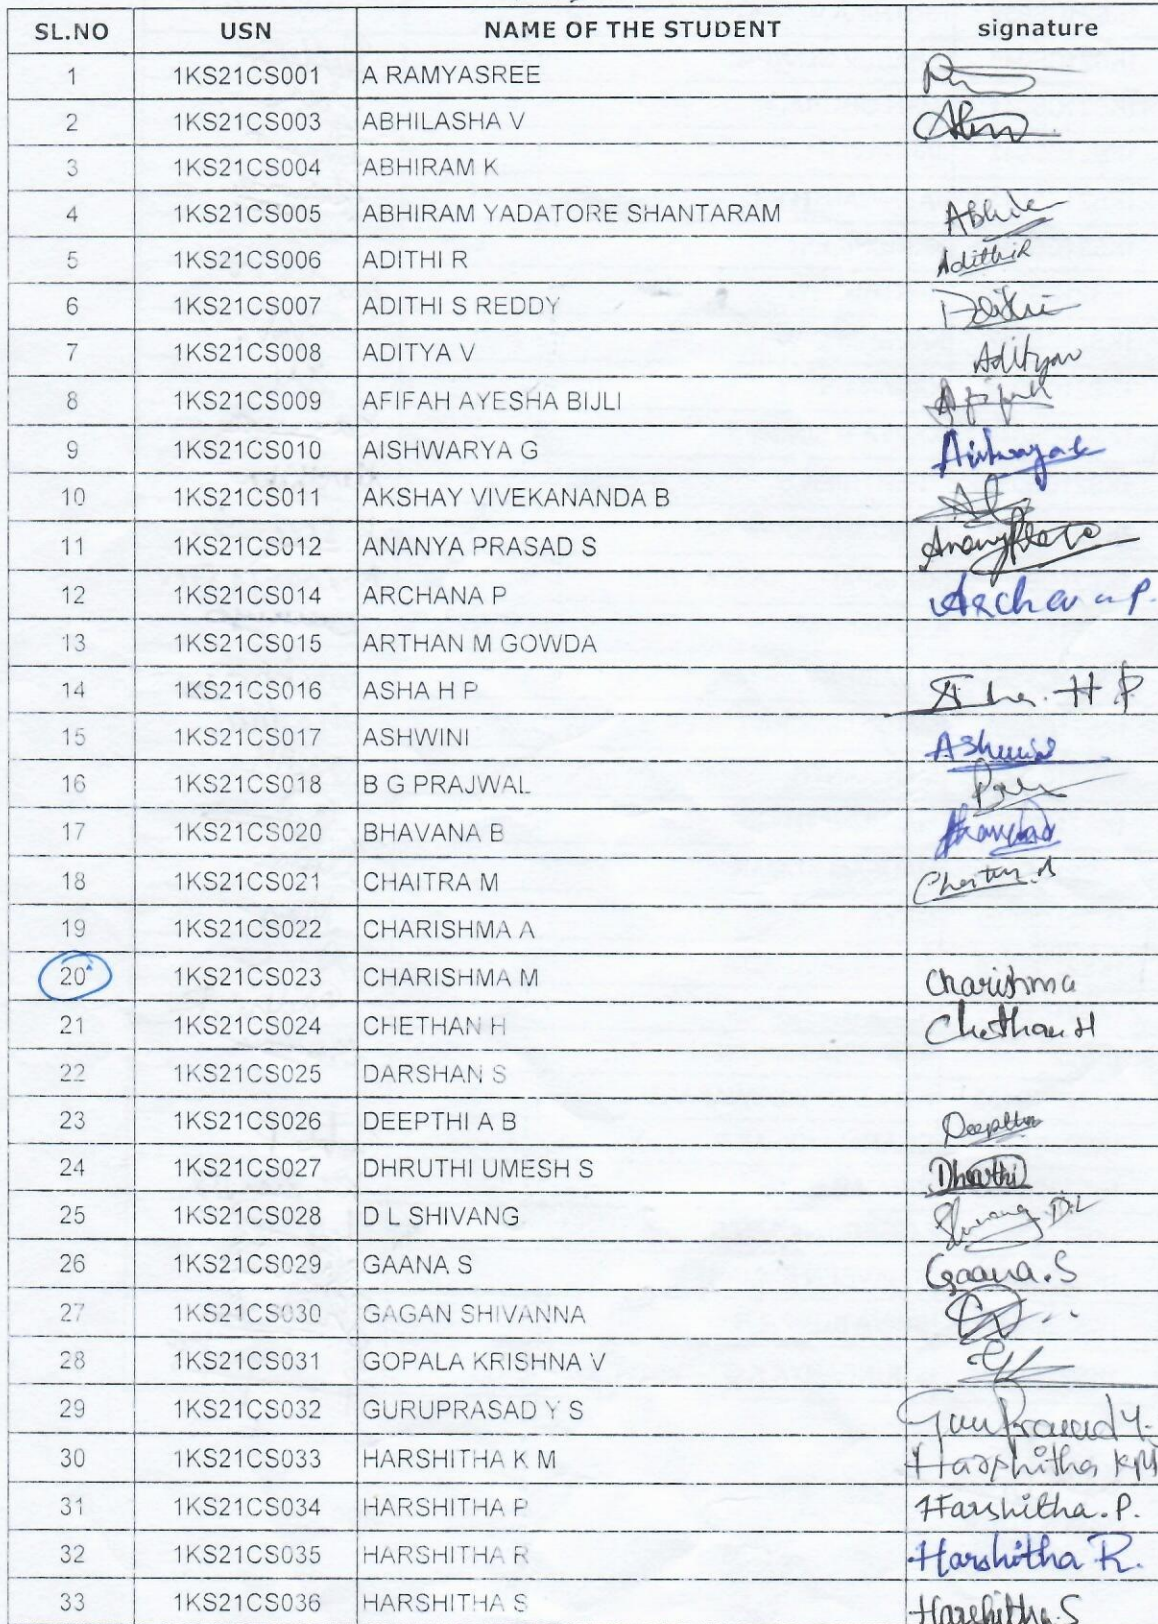 SL.NO USN NAME OF THE STUDENT signature
1 1KS21CS001 A RAMYASREE
2 1KS21CS003 ABHILASHA V
3 1KS21CS004 ABHIRAM K
4 1KS21CS005 ABHIRAM YADATORE SHANTARAM
5 1KS21CS006 ADITHI R AdithiR
6 1KS21CS007 ADITHI S REDDY
7 1KS21CS008 ADITYA V
8 1KS21CS009 AFIFAH AYESHA BIJLI
9 1KS21CS010 AISHWARYA G
10 1KS21CS011 AKSHAY VIVEKANANDA B
11 1KS21CS012 ANANYA PRASAD S
12 1KS21CS014 ARCHANA P Archana P.
13 1KS21CS015 ARTHAN M GOWDA
14 1KS21CS016 ASHA H P
15 1KS21CS017 ASHWINI
16 1KS21CS018 B G PRAJWAL
17 1KS21CS020 BHAVANA B
18 1KS21CS021 CHAITRA M
19 1KS21CS022 CHARISHMA A
20 1KS21CS023 CHARISHMA M Charishma
21 1KS21CS024 CHETHAN H Chethan H
22 1KS21CS025 DARSHAN S
23 1KS21CS026 DEEPTHI A B
24 1KS21CS027 DHRUTHI UMESH S Dhruthi
25 1KS21CS028 D L SHIVANG Shivang D.L
26 1KS21CS029 GAANA S Gaana.S
27 1KS21CS030 GAGAN SHIVANNA
28 1KS21CS031 GOPALA KRISHNA V
29 1KS21CS032 GURUPRASAD Y S
30 1KS21CS033 HARSHITHA K M Harshitha KM
31 1KS21CS034 HARSHITHA P Harshitha.P.
32 1KS21CS035 HARSHITHA R Harshitha R.
33 1KS21CS036 HARSHITHA S Harshitha.S